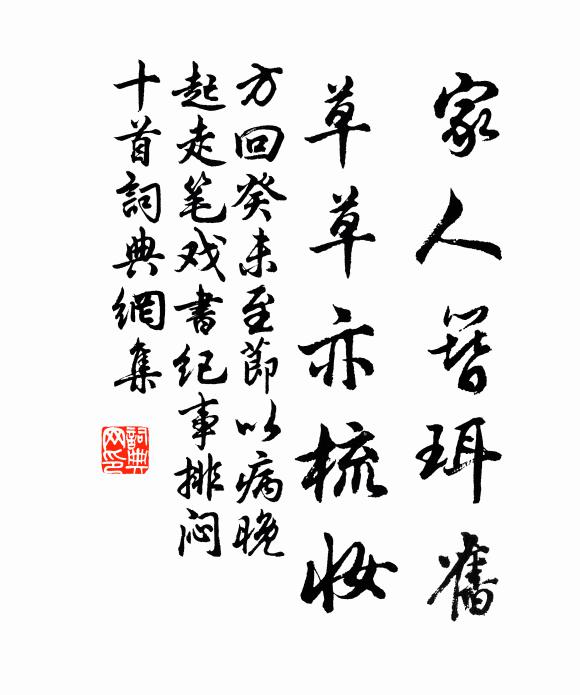 家人簪珥舊
草草亦梳妝
方回癸未至節以病晚
起走笔戏書纪事排闷
十首詞典網集
詞典網印